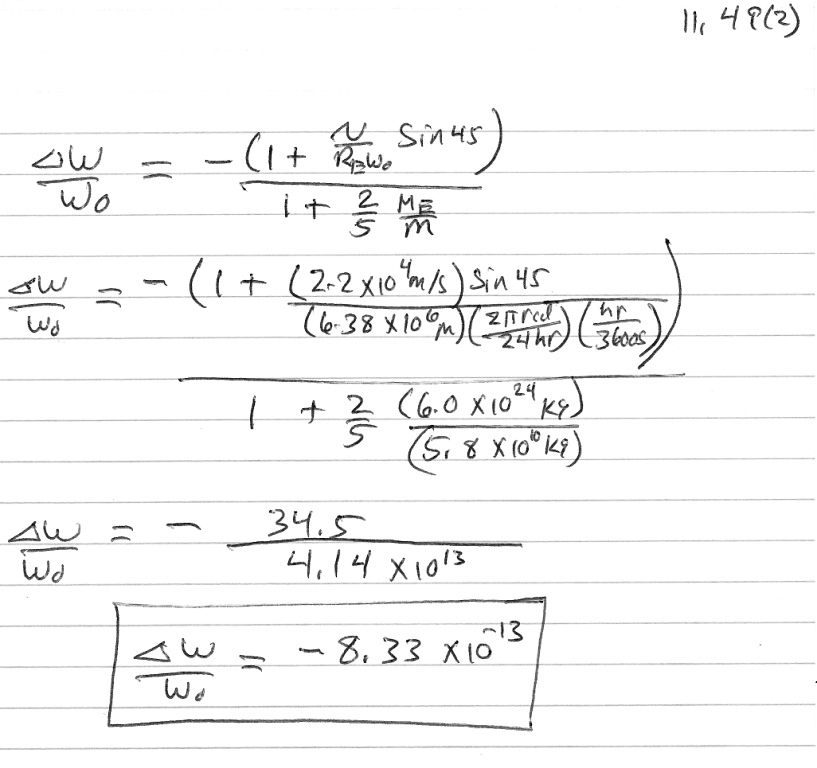 11.49(2)
Δω/ω₀ = -(1 + v/(R_E ω₀) Sin 45) / (1 + 2/5 M_E/m)
Δω/ω₀ = -(1 + (2.2 × 10⁴ m/s) Sin 45 / ((6.38 × 10⁶ m)(2π rad/24 hr)(hr/3600s))) / (1 + 2/5 (6.0 × 10²⁴ kg)/(5.8 × 10¹⁰ kg))
Δω/ω₀ = - 34.5 / 4.14 × 10¹³
Δω/ω₀ = - 8.33 × 10⁻¹³